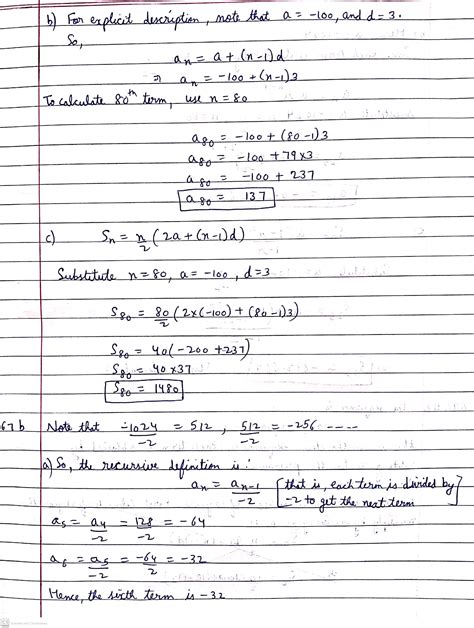 b) For explicit description, note that a = -100, and d = 3.
So,
aₙ = a + (n-1)d
⇒ aₙ = -100 + (n-1)3
To calculate 80th term, use n = 80
a₈₀ = -100 + (80-1)3
a₈₀ = -100 + 79×3
a₈₀ = -100 + 237
a₈₀ = 137
c) Sₙ = n/2 (2a + (n-1)d)
Substitute n = 80, a = -100, d = 3
S₈₀ = 80/2 (2×(-100) + (80-1)3)
S₈₀ = 40(-200 + 237)
S₈₀ = 40 × 37
S₈₀ = 1480
67 b Note that -1024/-2 = 512, 512/-2 = -256 ----
a) So, the recursive definition is:
aₙ = aₙ₋₁/-2 [that is, each term is divided by -2 to get the next term]
a₅ = a₄/-2 = 128/-2 = -64
a₆ = a₅/-2 = -64/2 = -32
Hence, the sixth term is -32